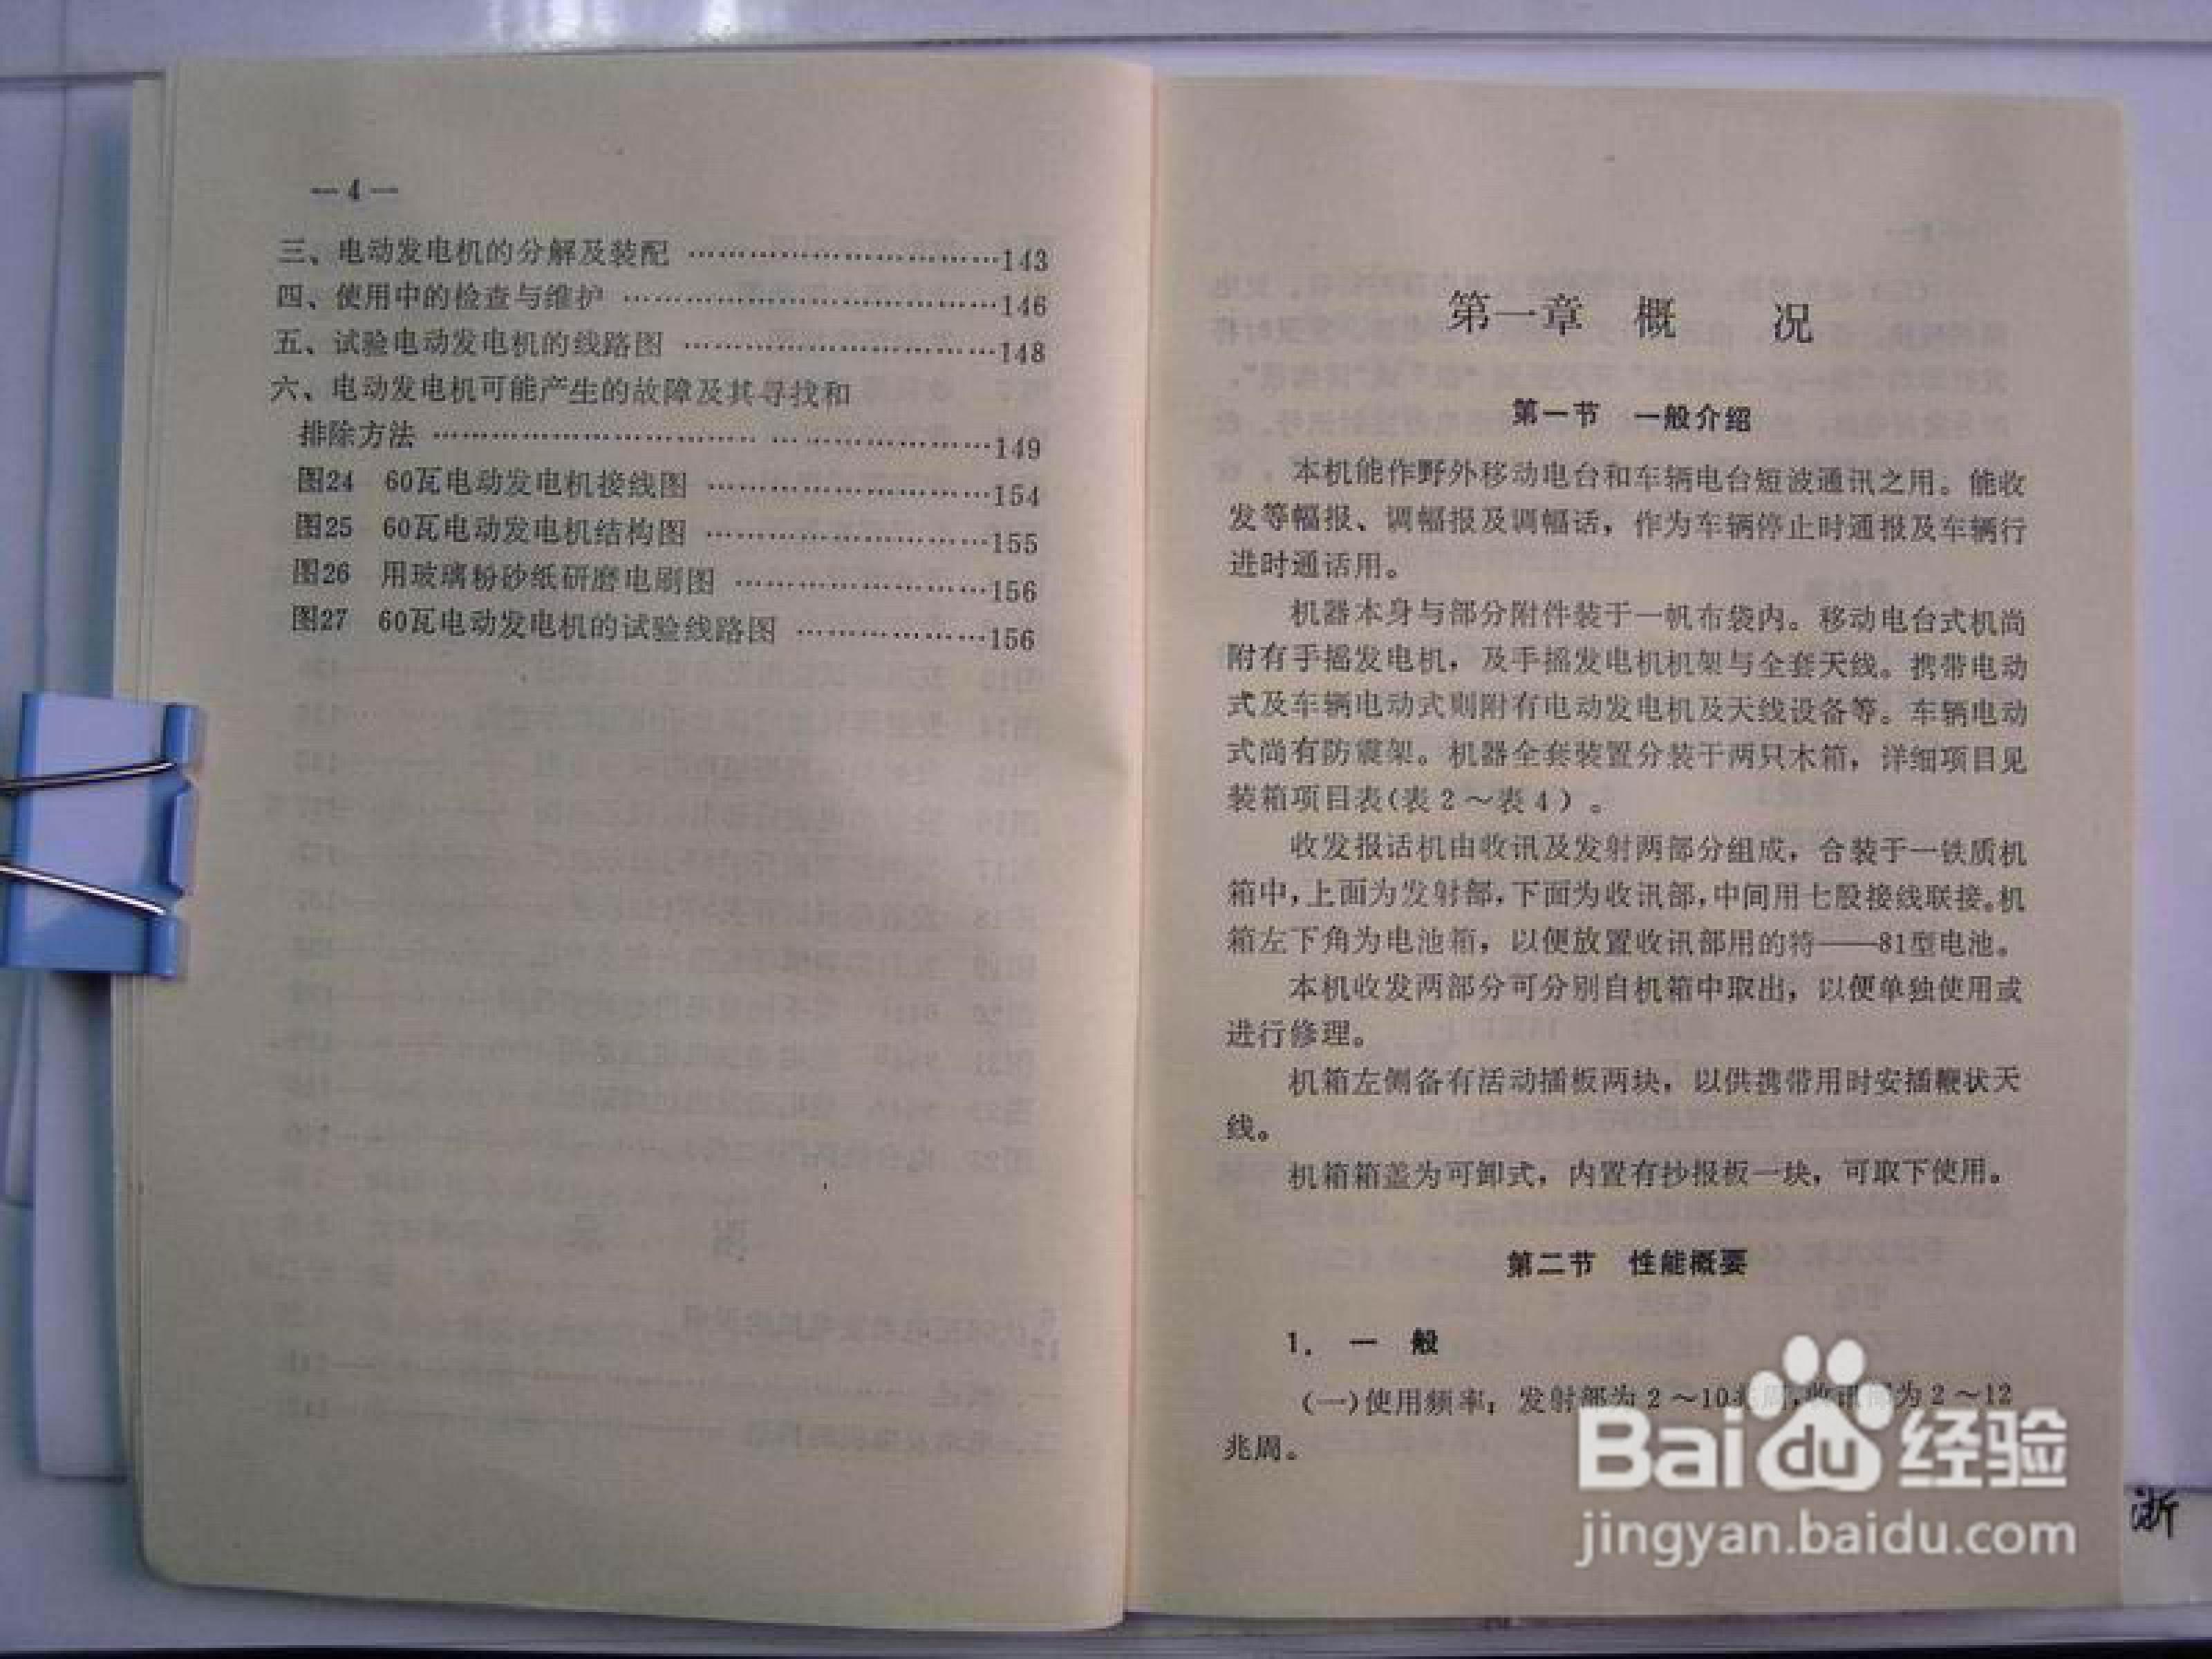 —4—
三、电动发电机的分解及装配 ……………………………143
四、使用中的检查与维护 …………………………………146
五、试验电动发电机的线路图 ……………………………148
六、电动发电机可能产生的故障及其寻找和
排除方法 …………………………… … ………………149
图24 60瓦电动发电机接线图 …………………………154
图25 60瓦电动发电机结构图 …………………………155
图26 用玻璃粉砂纸研磨电刷图 ………………………156
图27 60瓦电动发电机的试验线路图 …………………156
第一章 概 况
第一节 一般介绍
本机能作野外移动电台和车辆电台短波通讯之用。能收
发等幅报、调幅报及调幅话，作为车辆停止时通报及车辆行
进时通话用。
机器本身与部分附件装于一帆布袋内。移动电台式机尚
附有手摇发电机，及手摇发电机机架与全套天线。携带电动
式及车辆电动式则附有电动发电机及天线设备等。车辆电动
式尚有防震架。机器全套装置分装于两只木箱，详细项目见
装箱项目表(表2～表4)。
收发报话机由收讯及发射两部分组成，合装于一铁质机
箱中，上面为发射部，下面为收讯部，中间用七股接线联接。机
箱左下角为电池箱，以便放置收讯部用的特——81型电池。
本机收发两部分可分别自机箱中取出，以便单独使用或
进行修理。
机箱左侧备有活动插板两块，以供携带用时安插鞭状天
线。
机箱箱盖为可卸式，内置有抄报板一块，可取下使用。
第二节 性能概要
1. 一 般
(一)使用频率：发射部为2～10兆周，收讯部为2～12
兆周。
Baidu经验
jingyan.baidu.com
浙